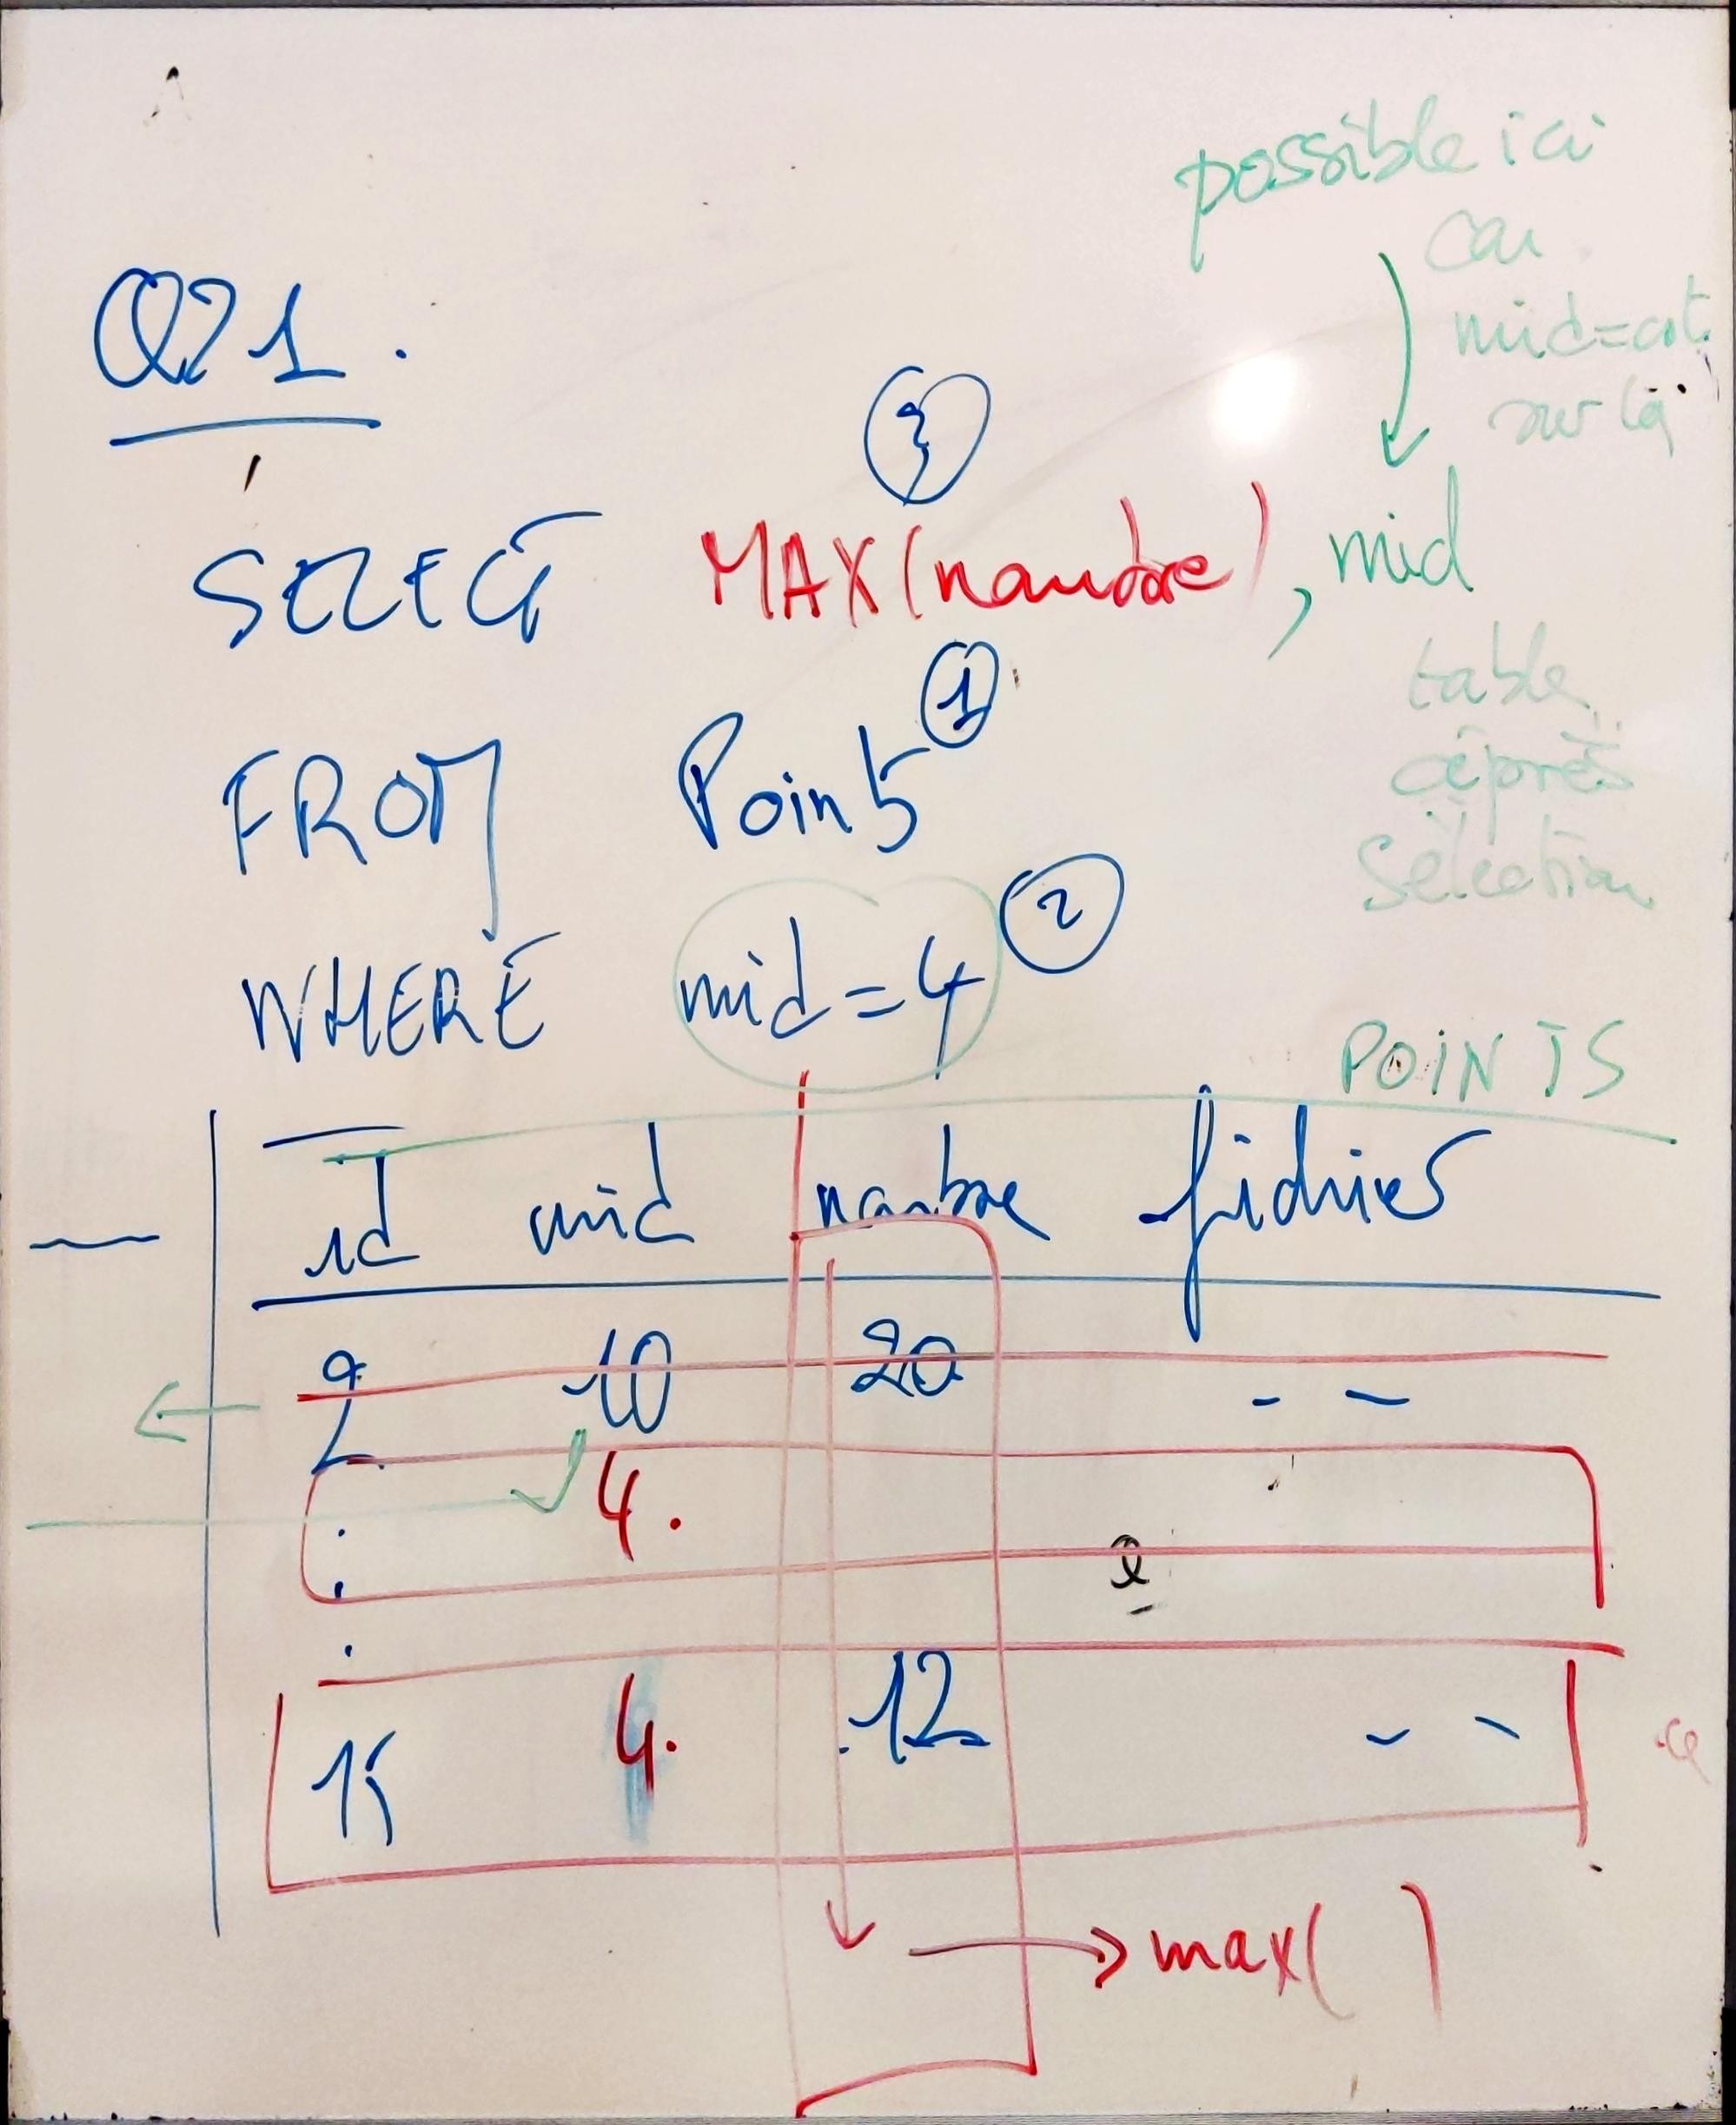 Q21.
possible ici
car
mid=cst
sur la
table
après
sélection
③
SELECT MAX(nombre), mid
①
FROM Points
②
WHERE mid=4
POINTS
id mid nombre fichier
2 10 20 - -
: 4.
.
15 4. 12 - -
max( )